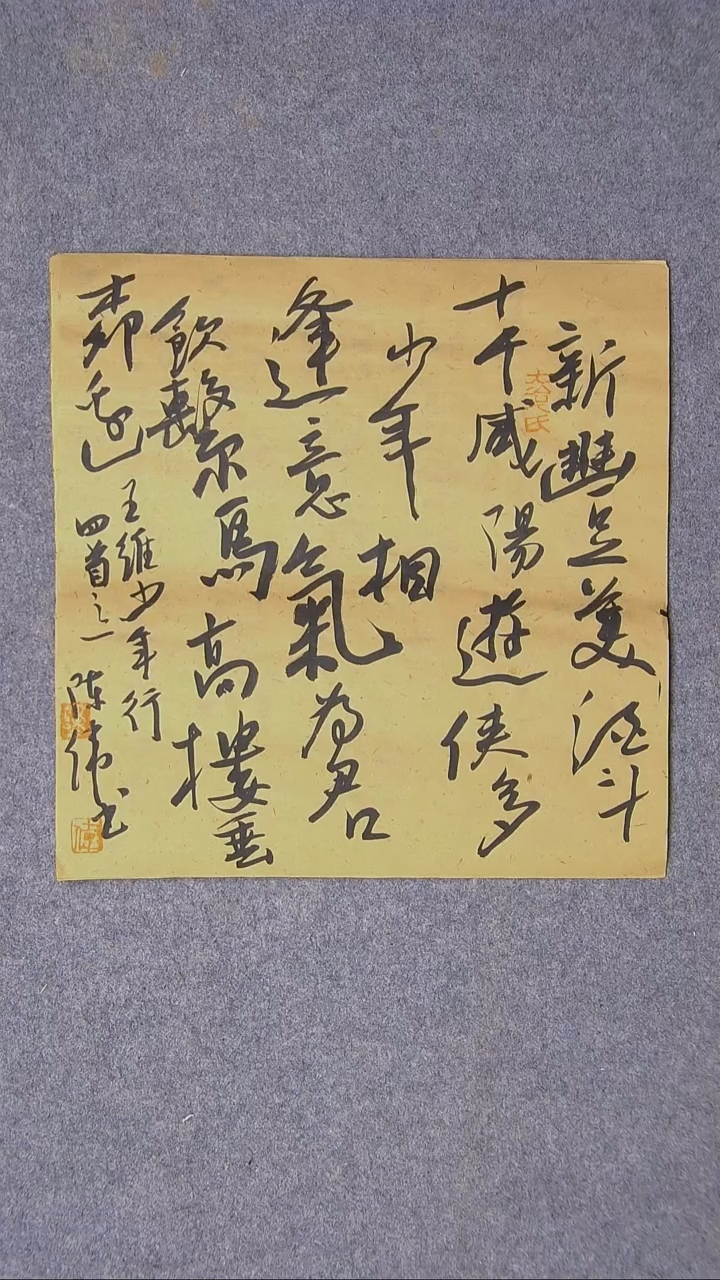 新豐美酒斗
十千咸陽遊俠多
少年相
逢意氣為君
飲繫馬高樓垂
柳邊
王維少年行
四首之一
陳偉书